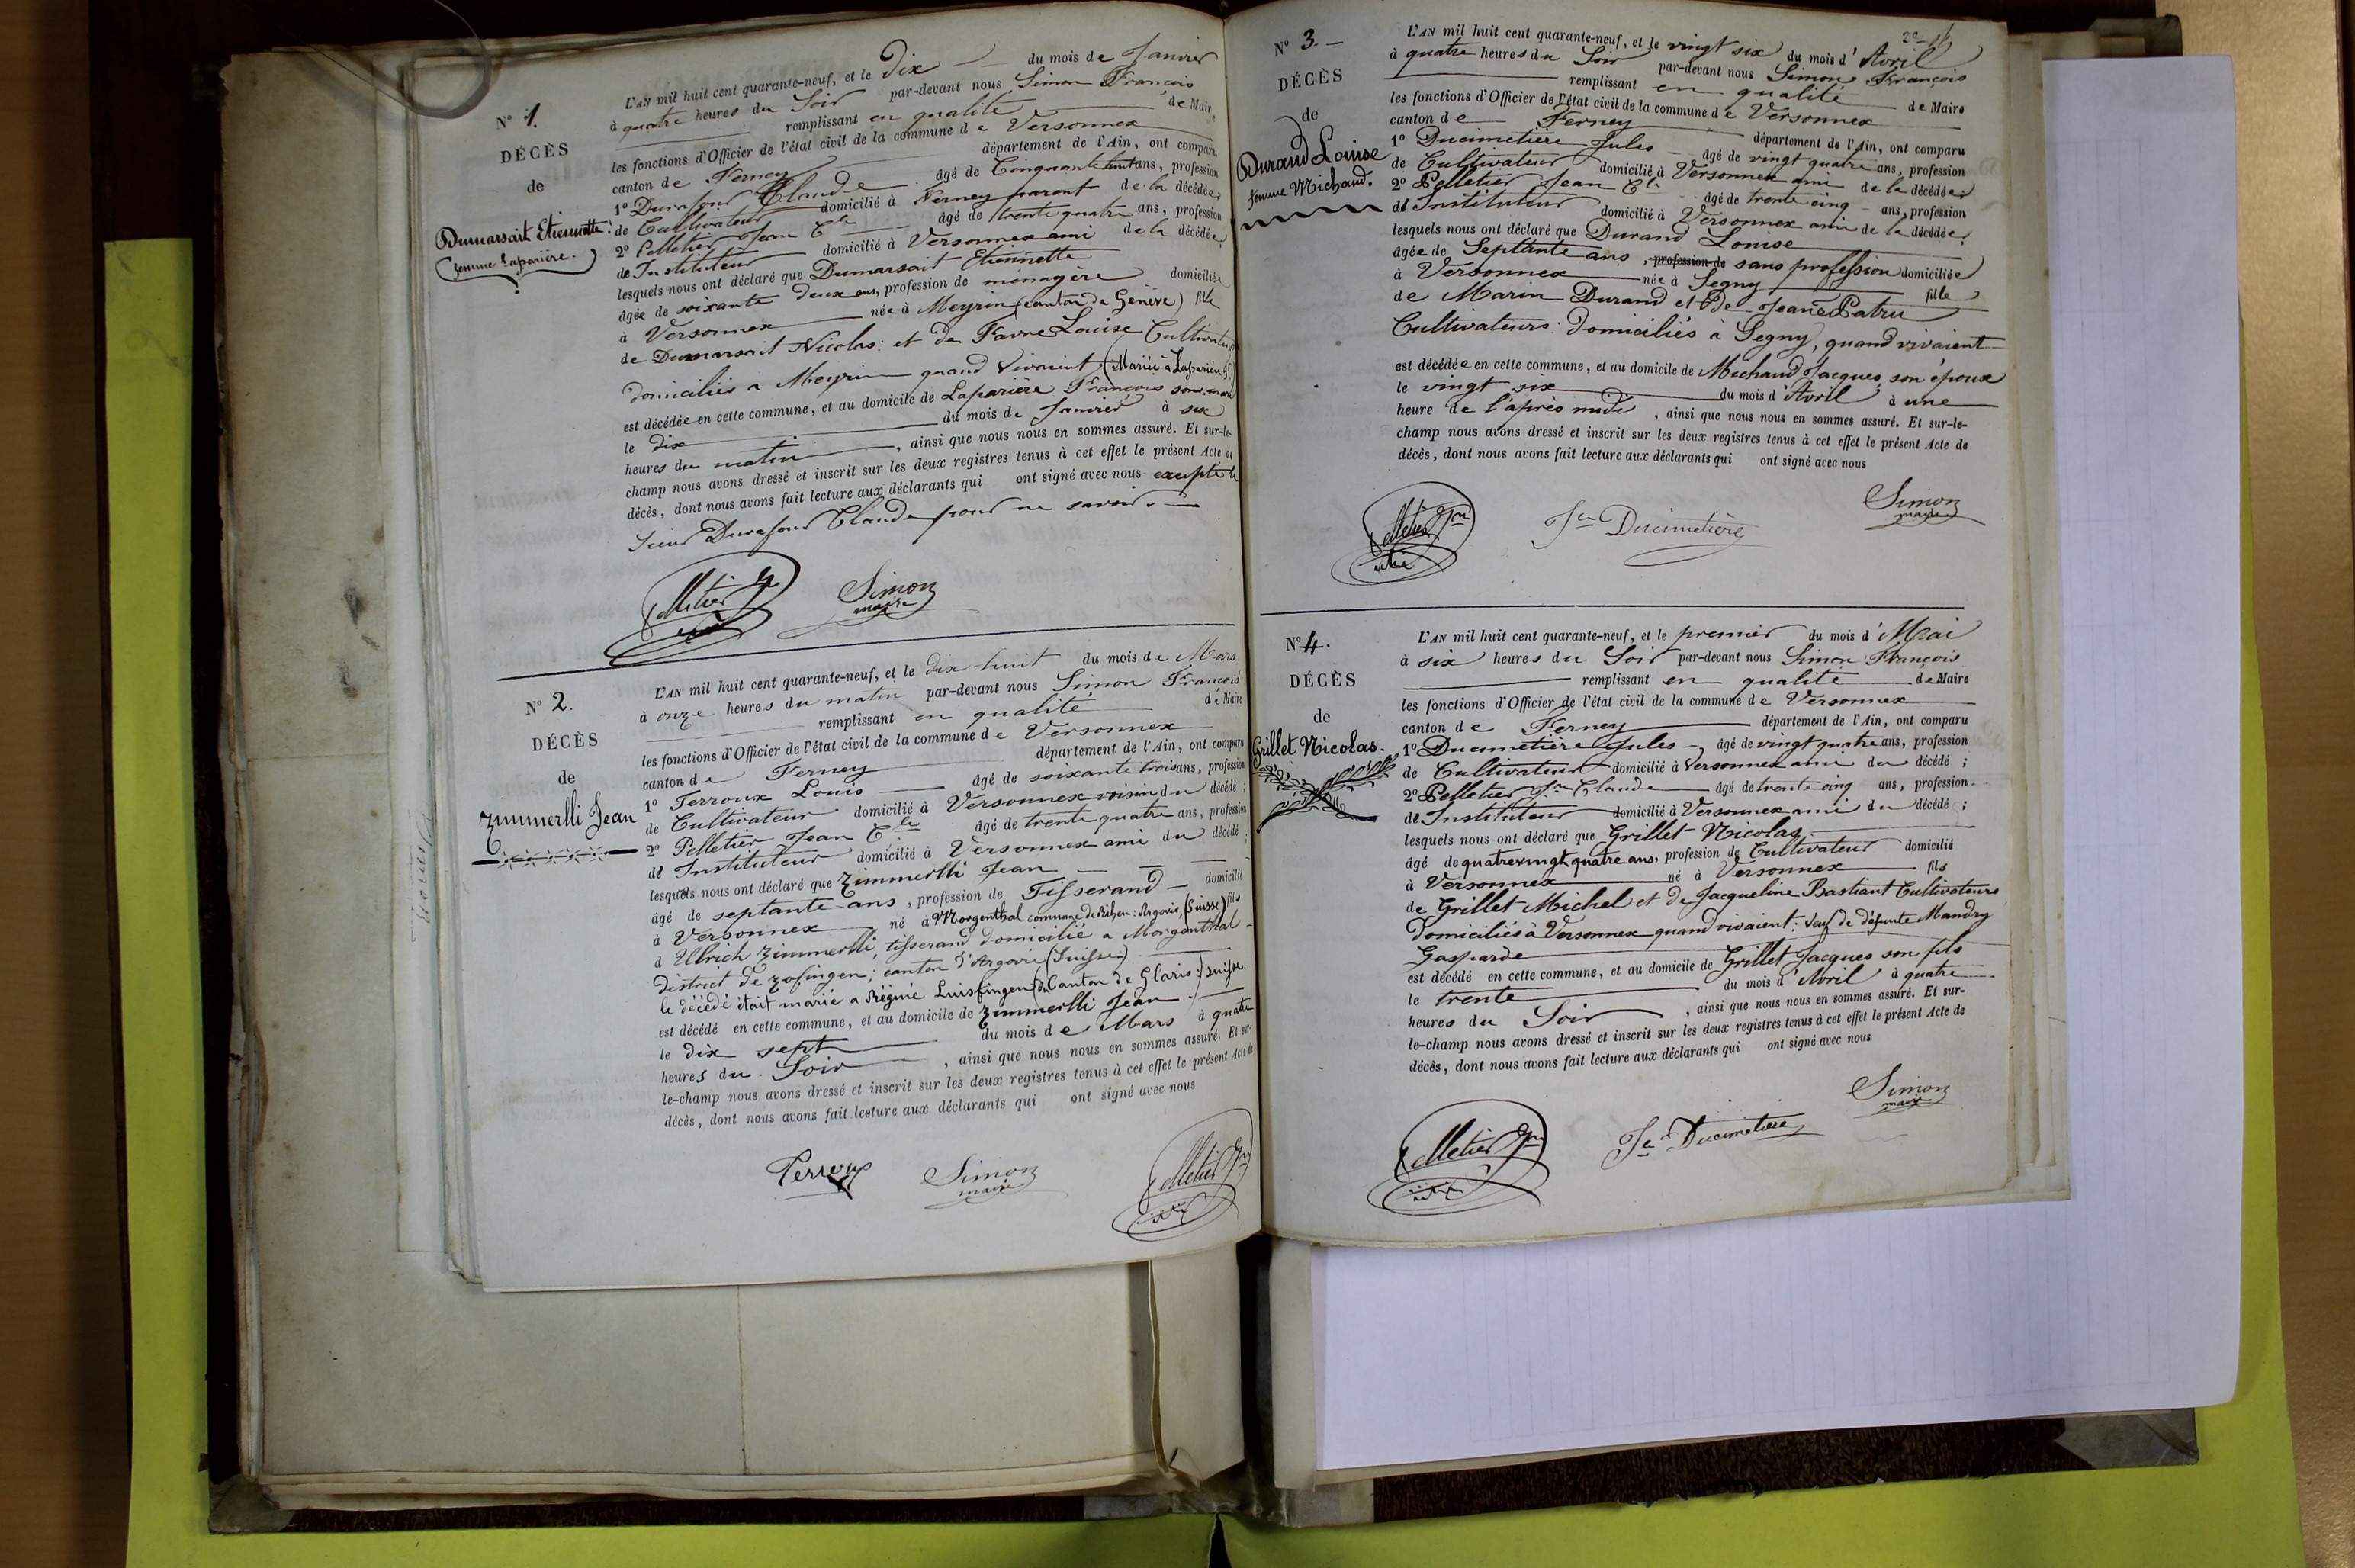 N° 1.
DÉCÈS
de
Dumarsait Etiennette
femme Laparière.
L'AN mil huit cent quarante-neuf, et le Dix du mois de Janvier
à quatre heures du Soir par-devant nous Simon François
remplissant en qualité de Maire
les fonctions d'Officier de l'état civil de la commune de Versonnex
canton de Ferney département de l'Ain, ont comparu
1° Durafour Claude âgé de Cinquante huit ans, profession
de Cultivateur domicilié à Ferney parent de la décédée;
2° Pelletier Jean Cde âgé de trente quatre ans, profession
de Instituteur domicilié à Versonnex ami de la décédée,
lesquels nous ont déclaré que Dumarsait Etiennette
âgée de soixante deux ans, profession de ménagère domiciliée
à Versonnex née à Meyrin (canton de Genève) fille
de Dumarsait Nicolas: et de Favre Louise Cultivateurs
domiciliés a Meyrin quand vivaient (Mariée à Laparière
est décédée en cette commune, et au domicile de Laparière François son mari
le dix du mois de Janvier à six
heures du matin, ainsi que nous nous en sommes assuré. Et sur-le-
champ nous avons dressé et inscrit sur les deux registres tenus à cet effet le présent Acte de
décès, dont nous avons fait lecture aux déclarants qui ont signé avec nous excepté le
Sieur Durafour Claude pour ne savoir.
Pelletier
Simon
maire
N° 2.
DÉCÈS
de
Zimmerlli Jean
L'AN mil huit cent quarante-neuf, et le dix huit du mois de Mars
à onze heures du matin par-devant nous Simon François
remplissant en qualité de Maire
les fonctions d'Officier de l'état civil de la commune de Versonnex
canton de Ferney département de l'Ain, ont comparu
1° Ferroux Louis âgé de soixante trois ans, profession
de Cultivateur domicilié à Versonnex voisin du décédé;
2° Pelletier Jean Cde âgé de trente quatre ans, profession
de Instituteur domicilié à Versonnex ami du décédé
lesquels nous ont déclaré que Zimmerlli Jean
âgé de septante ans, profession de Tisserand domicilié
à Versonnex né à Morgenthal commune de Rihen: Argovie, (Suisse) fils
d Ulrich Zimmerlli, tisserand domicilié a Morgenthal
district de Zofingen; canton d'Argovie (Suisse)
le décédé était marié a Régine Luisfingen (du Canton de Glaris:) suisse.
est décédé en cette commune, et au domicile de Zimmerlli Jean.
le dix sept du mois de Mars à quatre
heures du Soir, ainsi que nous nous en sommes assuré. Et sur-
le-champ nous avons dressé et inscrit sur les deux registres tenus à cet effet le présent Acte de
décès, dont nous avons fait lecture aux déclarants qui ont signé avec nous
Ferroux
Simon
maire
Pelletier
N° 3.
DÉCÈS
de
Durand Louise
femme Michaud.
L'AN mil huit cent quarante-neuf, et le vingt six du mois d'Avril
à quatre heures du Soir par-devant nous Simon François
remplissant en qualité de Maire
les fonctions d'Officier de l'état civil de la commune de Versonnex
canton de Ferney département de l'Ain, ont comparu
1° Ducimetière Jules âgé de vingt quatre ans, profession
de Cultivateur domicilié à Versonnex ami de la décédée;
2° Pelletier Jean Cl. âgé de trente cinq ans, profession
de Instituteur domicilié à Versonnex ami de la décédée,
lesquels nous ont déclaré que Durand Louise
âgée de Septante ans, profession de sans profession domiciliée
à Versonnex née à Segny fille
de Marin Durand et de Jeanne Patru
Cultivateurs: domiciliés à Segny, quand vivaient
est décédée en cette commune, et au domicile de Michaud Jacques, son époux
le vingt six du mois d'Avril à une
heure de l'après midi, ainsi que nous nous en sommes assuré. Et sur-le-
champ nous avons dressé et inscrit sur les deux registres tenus à cet effet le présent Acte de
décès, dont nous avons fait lecture aux déclarants qui ont signé avec nous
Pelletier
Ducimetière
Simon
maire
N° 4.
DÉCÈS
de
Grillet Nicolas.
L'AN mil huit cent quarante-neuf, et le premier du mois d'Mai
à six heures du Soir par-devant nous Simon François
remplissant en qualité de Maire
les fonctions d'Officier de l'état civil de la commune de Versonnex
canton de Ferney département de l'Ain, ont comparu
1° Ducimetière Jules âgé de vingt quatre ans, profession
de Cultivateur domicilié à Versonnex ami du décédé;
2° Pelletier Jn Claude âgé de trente cinq ans, profession
de Instituteur domicilié à Versonnex ami du décédé;
lesquels nous ont déclaré que Grillet Nicolas
âgé de quatrevingt quatre ans, profession de Cultivateur domicilié
à Versonnex né à Versonnex fils
de Grillet Michel et de Jacqueline Bastiant Cultivateurs
Domiciliés à Versonnex quand vivaient: Veuf de défunte Mandry
Gasparde
est décédé en cette commune, et au domicile de Grillet Jacques son fils
le trente du mois d'Avril à quatre
heures du Soir, ainsi que nous nous en sommes assuré. Et sur-
le-champ nous avons dressé et inscrit sur les deux registres tenus à cet effet le présent Acte de
décès, dont nous avons fait lecture aux déclarants qui ont signé avec nous
Pelletier
Ducimetière
Simon
maire